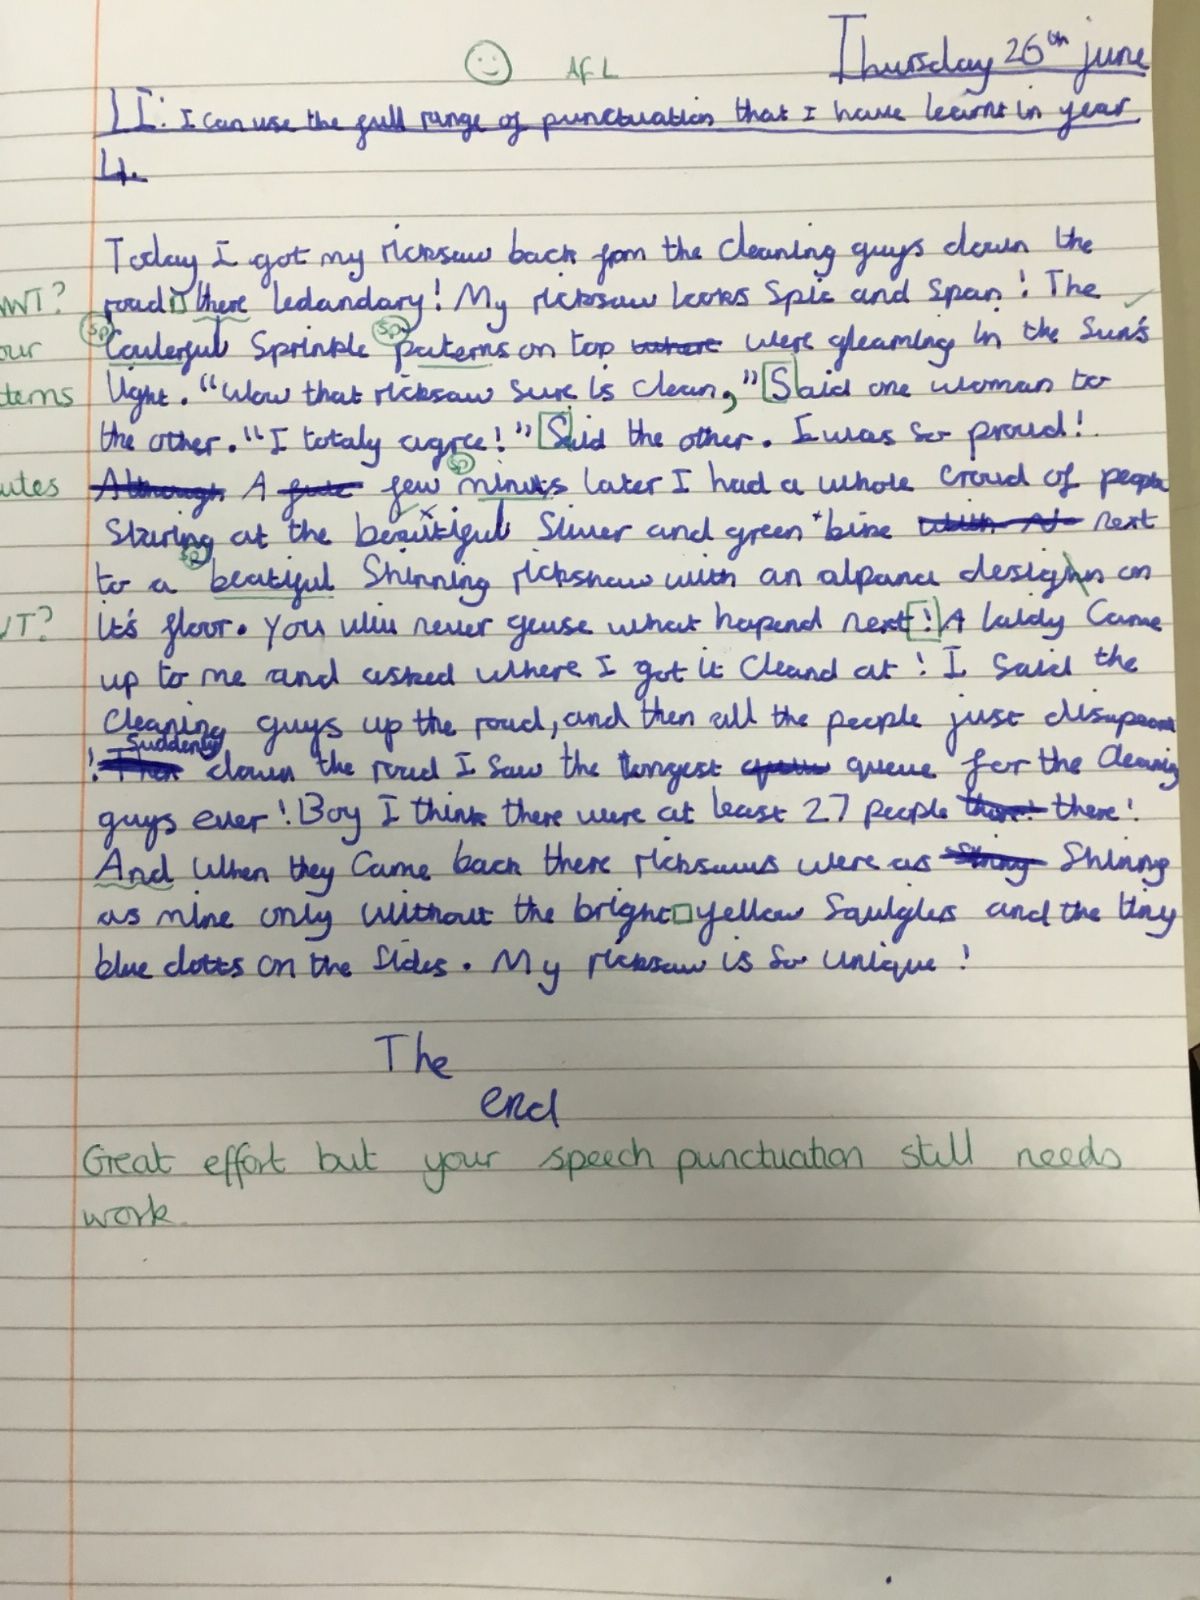 AFL
Thursday 26th june
LI: I can use the full range of punctuation that I have learnt in year
4.
Today I got my ricksaw back from the cleaning guys down the
WWT? road there ledandary! My ricksaw looks Spic and Span! The
our sp Coulerful Sprinkle sp paterns on top were gleaming in the Sun's
tterns light. "Wow that ricksaw sure is clean," Said one woman to
the other. "I totaly agree!" Said the other. I was so proud!
utes A few sp minuts later I had a whole Croud of people
Staring at the beautiful Silver and green bike next
to a sp beatiful Shinning rickshaw with an alpana design on
WT? it's floor. You will never geuse what hapend next! A laldy Came
up to me and asked where I got it Cleand at! I Said the
Cleaning guys up the road, and then all the people just
! Suddenly down the road I saw the longest queue for the Cleaning
guys ever! Boy I think there were at least 27 people there!
And When they Came back there ricksaws were as Shining
as mine only without the bright yellow and the tiny
blue dotts on the Sides. My ricksaw is So unique!
The
end
Great effort but your speech punctuation still needs
work.